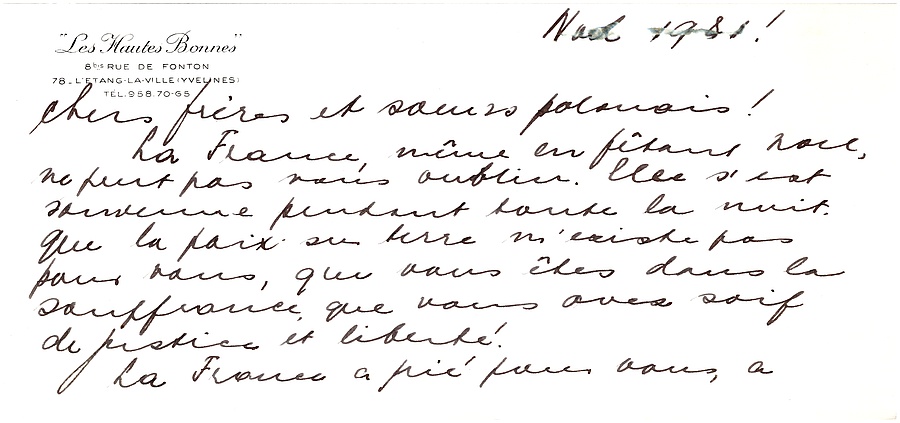 "Les Hautes Bonnes"
8bis RUE DE FONTON
78_L'ETANG-LA-VILLE (YVELINES)
TÉL. 958.70-65
Noël 1981!
Chers frères et soeurs polonais!
La France, même en fêtant Noël,
ne peut pas vous oublier. Elle s'est
souvenue pendant toute la nuit.
Que la paix sur terre n'existe pas
pour vous, que vous êtes dans la
souffrance, que vous avez soif
de justice et liberté!
La France a prié pour vous, a